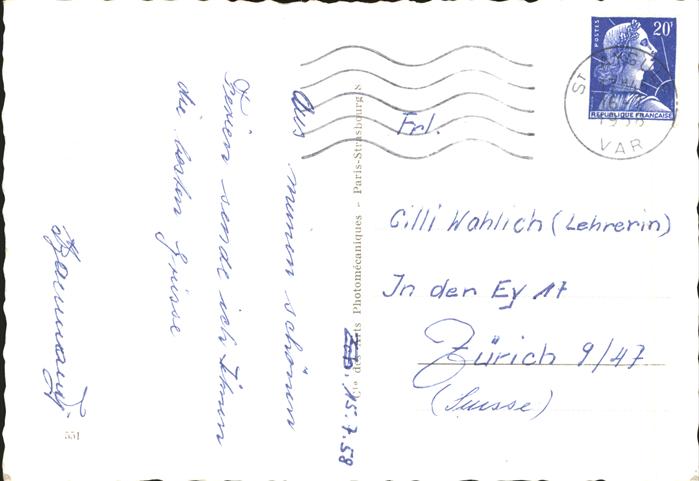 15.7.58
Aus meinen schönen
Ferien sende ich Ihnen
die besten Grüsse
Cie des Arts Photomécaniques - Paris-Strasbourg s
551
POSTES
20f
REPUBLIQUE FRANÇAISE
ST
VAR
Frl.
Cilli Wahlich (Lehrerin)
In der Ey 17
Zürich 9/47
(Suisse)